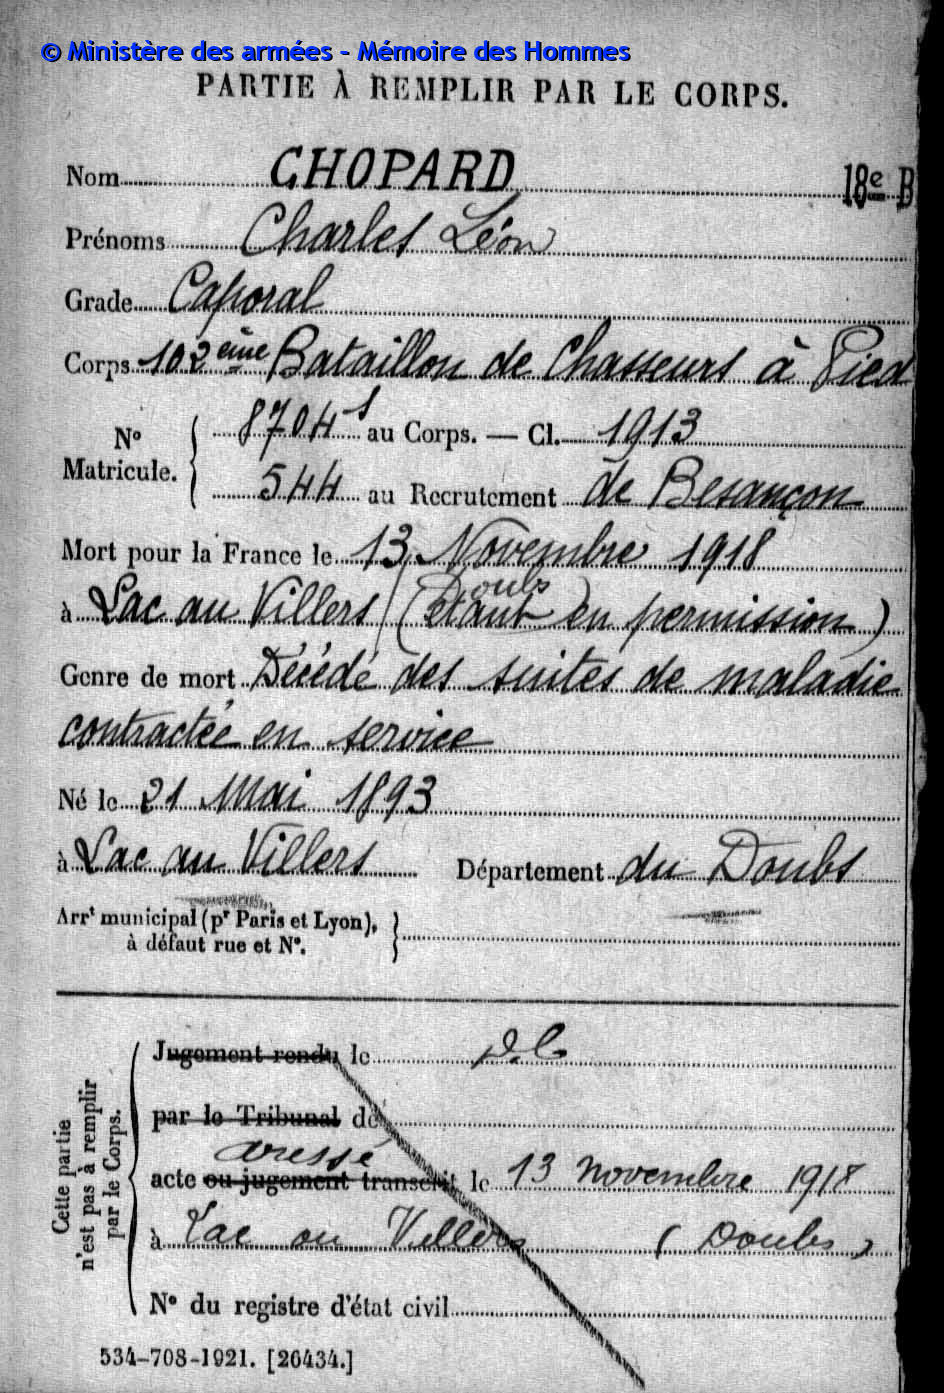 © Ministère des armées - Mémoire des Hommes
PARTIE À REMPLIR PAR LE CORPS.
Nom CHOPARD 18e B
Prénoms Charles Léon
Grade Caporal
Corps 102ème Bataillon de Chasseurs à Pied
No Matricule. { 8704s au Corps. — Cl. 1913
544 au Recrutement de Besançon
Mort pour la France le 13 Novembre 1918
Doubs
à Lac au Villers (étant en permission)
Genre de mort Décédé des suites de maladie
contractée en service
Né le 21 Mai 1893
à Lac au Villers Département du Doubs
Arrt municipal (pr Paris et Lyon),
à défaut rue et No.
Cette partie
n'est pas à remplir
par le Corps.
Jugement rendu le D.C
par le Tribunal de
dressé
acte ou jugement transcrit le 13 novembre 1918
à Lac ou Villers (Doubs)
No du registre d'état civil
534-708-1921. [26434.]